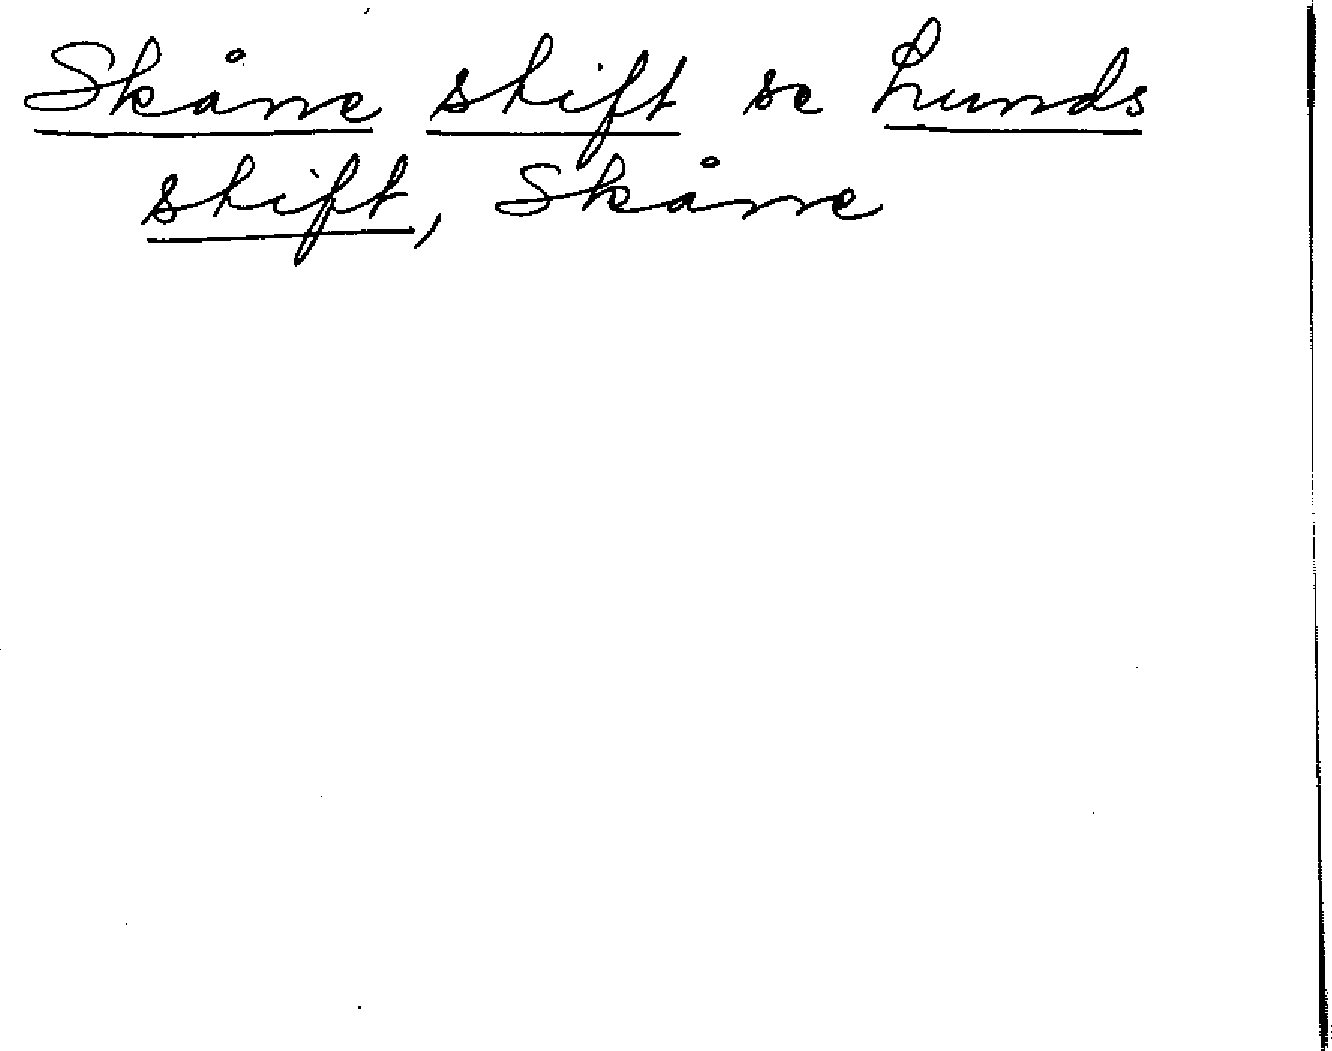 Skåne stift se Lunds
stift, Skåne